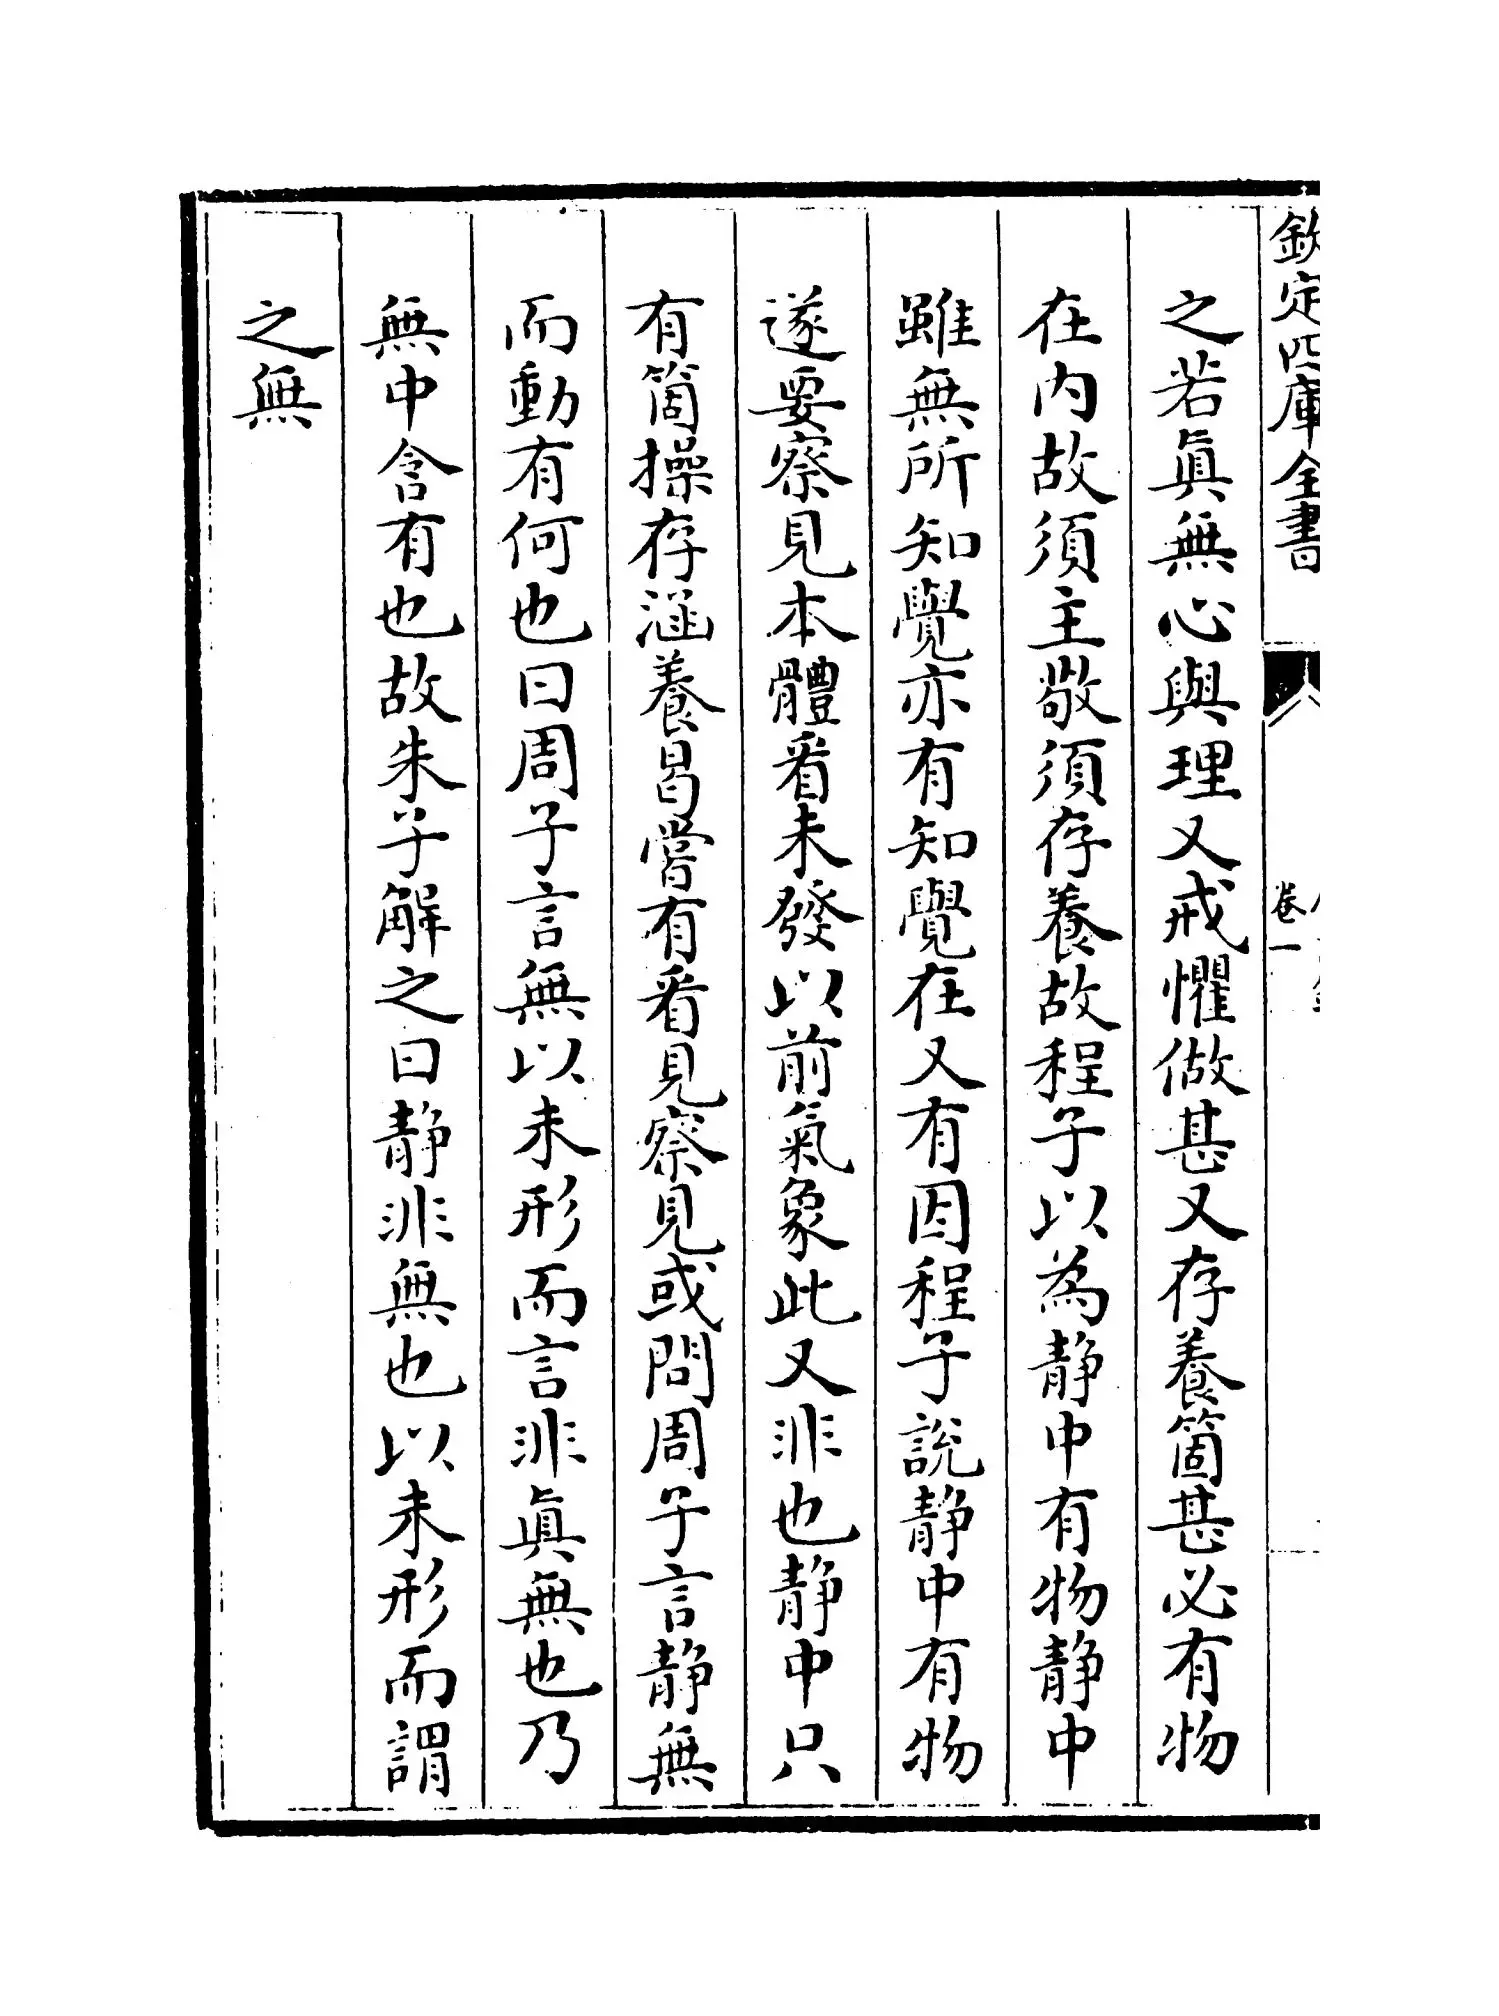 欽定四庫全書
卷一
之若眞無心與理又戒懼做甚又存養箇甚必有物
在内故須主敬須存養故程子以為静中有物静中
雖無所知覺亦有知覺在又有因程子說静中有物
遂要察見本體看未發以前氣象此又非也静中只
有箇操存涵養曷嘗有看見察見或問周子言静無
而動有何也曰周子言無以未形而言非眞無也乃
無中含有也故朱子解之曰静非無也以未形而謂
之無